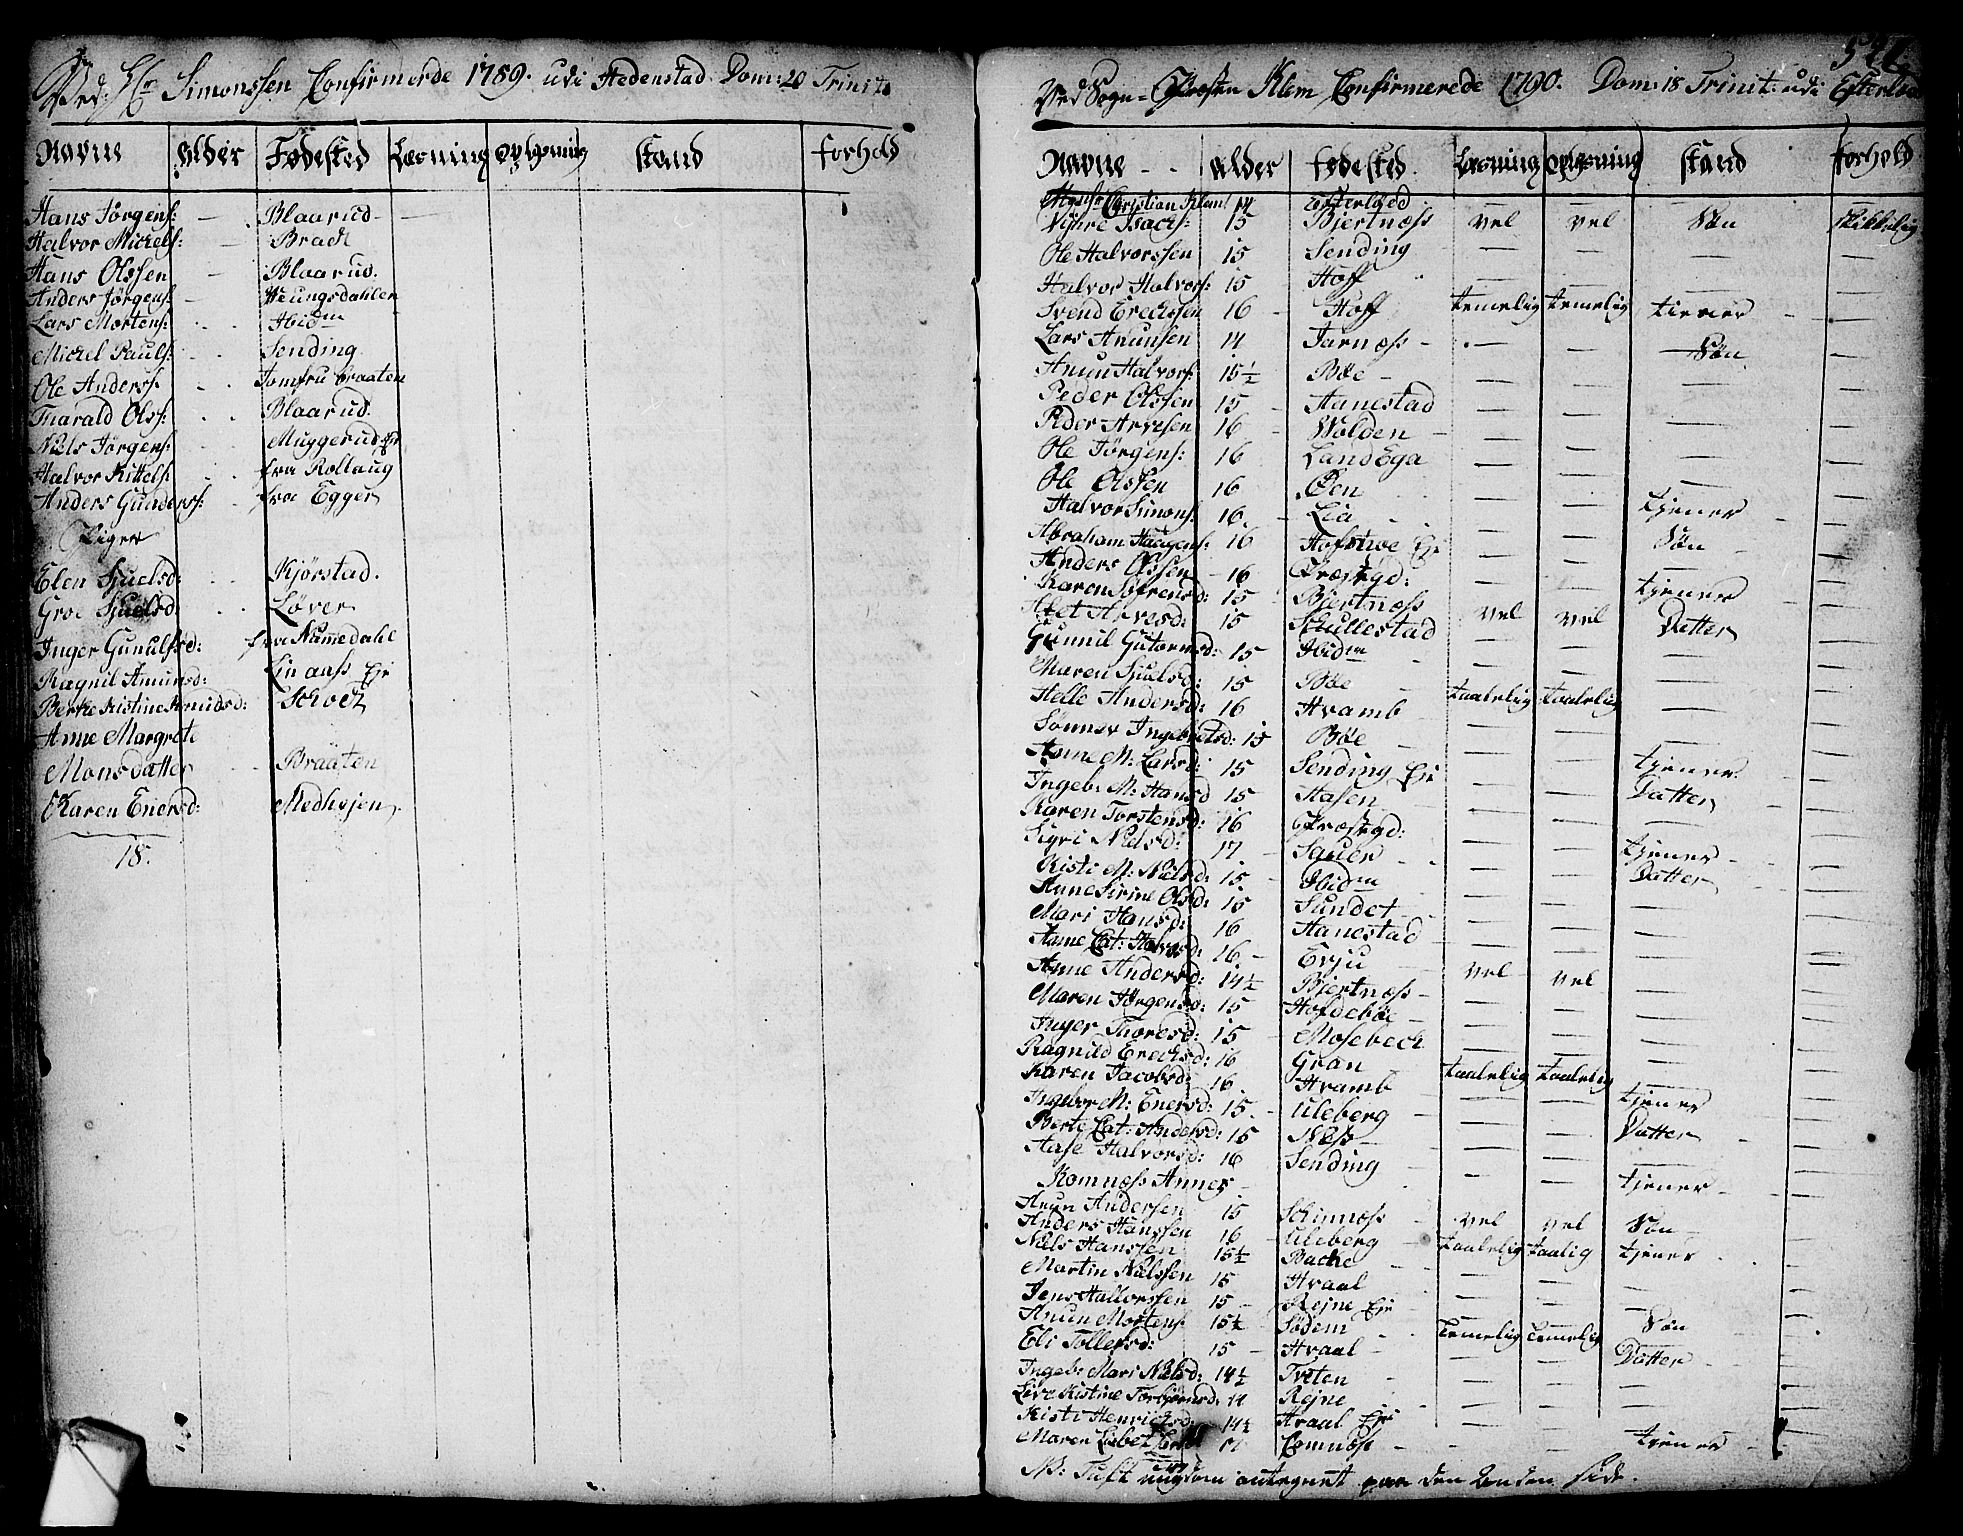 Ved Hr Simonssen Confirmerede 1789. udi Hedenstad Dom: 20 Trinit:
Navne Alder Fødested Læsning Oplysning stand forhold
Hans Jørgens: — Blaarud —
Halvor Mickels: — Brack
Hans Olssen — Blaarud.
Anders Jørgens: — Weungsdahlen
Lars Mortens: Ibidm
Mickel Pauls: Sending
Ole Anderss: Jomfrubraaten
Tharald Olss: Blaarud.
Niels Jørgens: Muggerud Eje
Halvor Kittels: fra Rollaug
Anders Gunderss: fra Egger
Piger
Elen Sjuelsd: Kjørstad.
Groe Sjuelsd Løver
Inger Gunulfsd: fra Numedahl
Ragnil Amunsd: Linaass Eje
Berthe Kistine Knudsd: Schoet
Anne Margrete
Monsdatter Braaten
Karen Enersd: Medhejen
18.
52
Ved Sogne-Præsten Klem Confirmerede 1790. Dom: 18 Trinit: udi Efterløed
Navne alder fødested Læsning Oplysning stand forhold
Christian Klem 14 Efterløed — — —
Isachs: 15 Bjertnæss vel vel Søn skikkelig
Ole Halvorssen 15 Sending — — — —
Halvor Halvors: 15 Hoff — — — —
Svend Erichssen 16 Hoff temelig temelig tiener —
Lars Anunsen 14 Jarnæss — — Søn —
Anun Halvors: 15½ Bøe — — — —
Peder Olssen 15 Aanestad — — — —
Peder Arvesen 16 Wolden — — — —
Ole Jørgens: 16 Landega — — — —
Ole Olssen 16 Øen — — — —
Halvor Simons: 16. Lia — — tjener —
Abraham Haagens: 16 Hofstue Eje — — Søn —
Anders Olssen 16 Præstgd: — — — —
Karen Søfrensd: 15 Bjertnæss — — tjener —
Abet Arvesd: 15 Skullestad vel vel Datter —
Gunnil Gutormsd: 15 Ibidm — — — —
Maren Sjuelsd: 15 Bøe — — — —
Helle Andersd: 16 Hvamb taalelig taalelig — —
Sønnev Ingebretsd: 15 Bøe — — — —
Anne M: Larsd: 15 Sending Eje — — tjener —
Ingeb: M: Hansd 15 Hasen — — Datter —
Karen Torstensd: 16 Præstgd: — — — —
Sigri Nielsd: 17 Sauer — — tjener —
Kisti M: Nielsd: 15 Ibidm — — Datter —
Anne Sirine Olsd: 15 Sundet — — — —
Mari Hansd: 16 Aanestad — — — —
Anne Cat: Halvorsd: 16 Evju — — — —
Anne Andersd: 14½ Bjertnæss vel vel — —
Maren Jørgensd: 15 Hofdebøe — — — —
Inger Thoresd: 15 Mosebeck — — — —
Ragnild Erecksd: 16 Gran — — — —
Karen Jacobsd: 16 Hvamb taalelig taalelig — —
Ingebor M: Enersd: 15 Uleberg — — tjener —
Berte Cat: Andersd: 15 Næss — — Datter —
Aase Halvorsd: 16 Sending — — — —
Komnæss Annex — — tjener —
Anun Andersen 15 Skinnæss vel vel Søn —
Anders Hanssen 16 Uleberg taalelig taalig tjener
Niels Hanssen 15½ Bache — — — —
Martin Nielssen 15 Hvaal — — — —
Jens Hallvorssen 15 Rejne Eje — — — —
Anun Mortens: 15½ Sødem temelig temelig Søn —
Eli Tollefsd: 15 Hvaal — — Datter —
Ingeb: Mari Nielsd: 14½ Tveten — — — —
Live Kistine Torbjørnsd: 14 Rejne — — — —
Kisti Henrichsd: 14½ Hvaal Eje — — — —
Maren Lisbet 17 Komnæss — — tjener —
NB: Tuft ungdom antegnet paa den anden side.